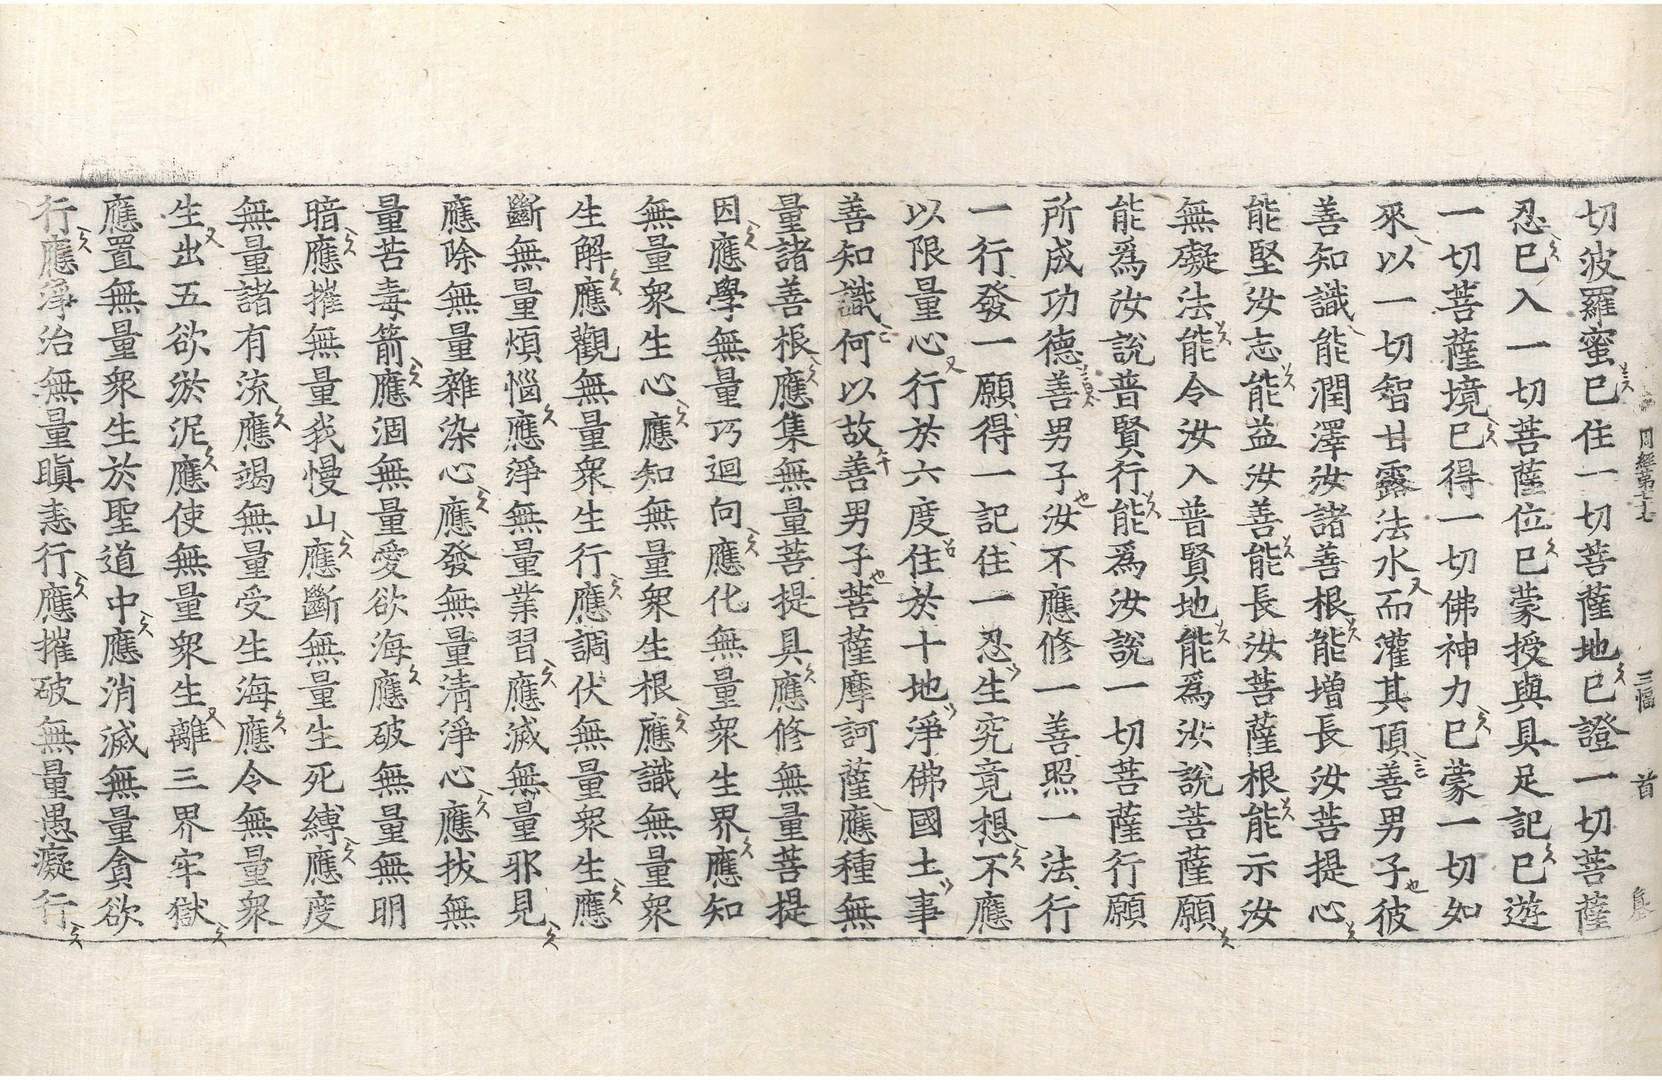 周經第七十七 三幅 首
切波羅蜜已住一切菩薩地已證一切菩薩
忍已入一切菩薩位已蒙授與具足記已遊
一切菩薩境已得一切佛神力已蒙一切如
來以一切智甘露法水而灌其頂善男子彼
善知識能潤澤汝諸善根能增長汝菩提心
能堅汝志能益汝善能長汝菩薩根能示汝
無礙法能令汝入普賢地能爲汝說菩薩願
能爲汝說普賢行能爲汝說一切菩薩行願
所成功德善男子汝不應修一善照一法行
一行發一願得一記住一忍生究竟想不應
以限量心行於六度住於十地淨佛國土事
善知識何以故善男子菩薩摩訶薩應種無
量諸善根應集無量菩提具應修無量菩提
因應學無量巧迴向應化無量衆生界應知
無量衆生心應知無量衆生根應識無量衆
生解應觀無量衆生行應調伏無量衆生應
斷無量煩惱應淨無量業習應滅無量邪見
應除無量雜染心應發無量清淨心應拔無
量苦毒箭應涸無量愛欲海應破無量無明
暗應摧無量我慢山應斷無量生死縛應度
無量諸有流應竭無量受生海應令無量衆
生出五欲淤泥應使無量衆生離三界牢獄
應置無量衆生於聖道中應消滅無量貪欲
行應淨治無量瞋恚行應摧破無量愚癡行